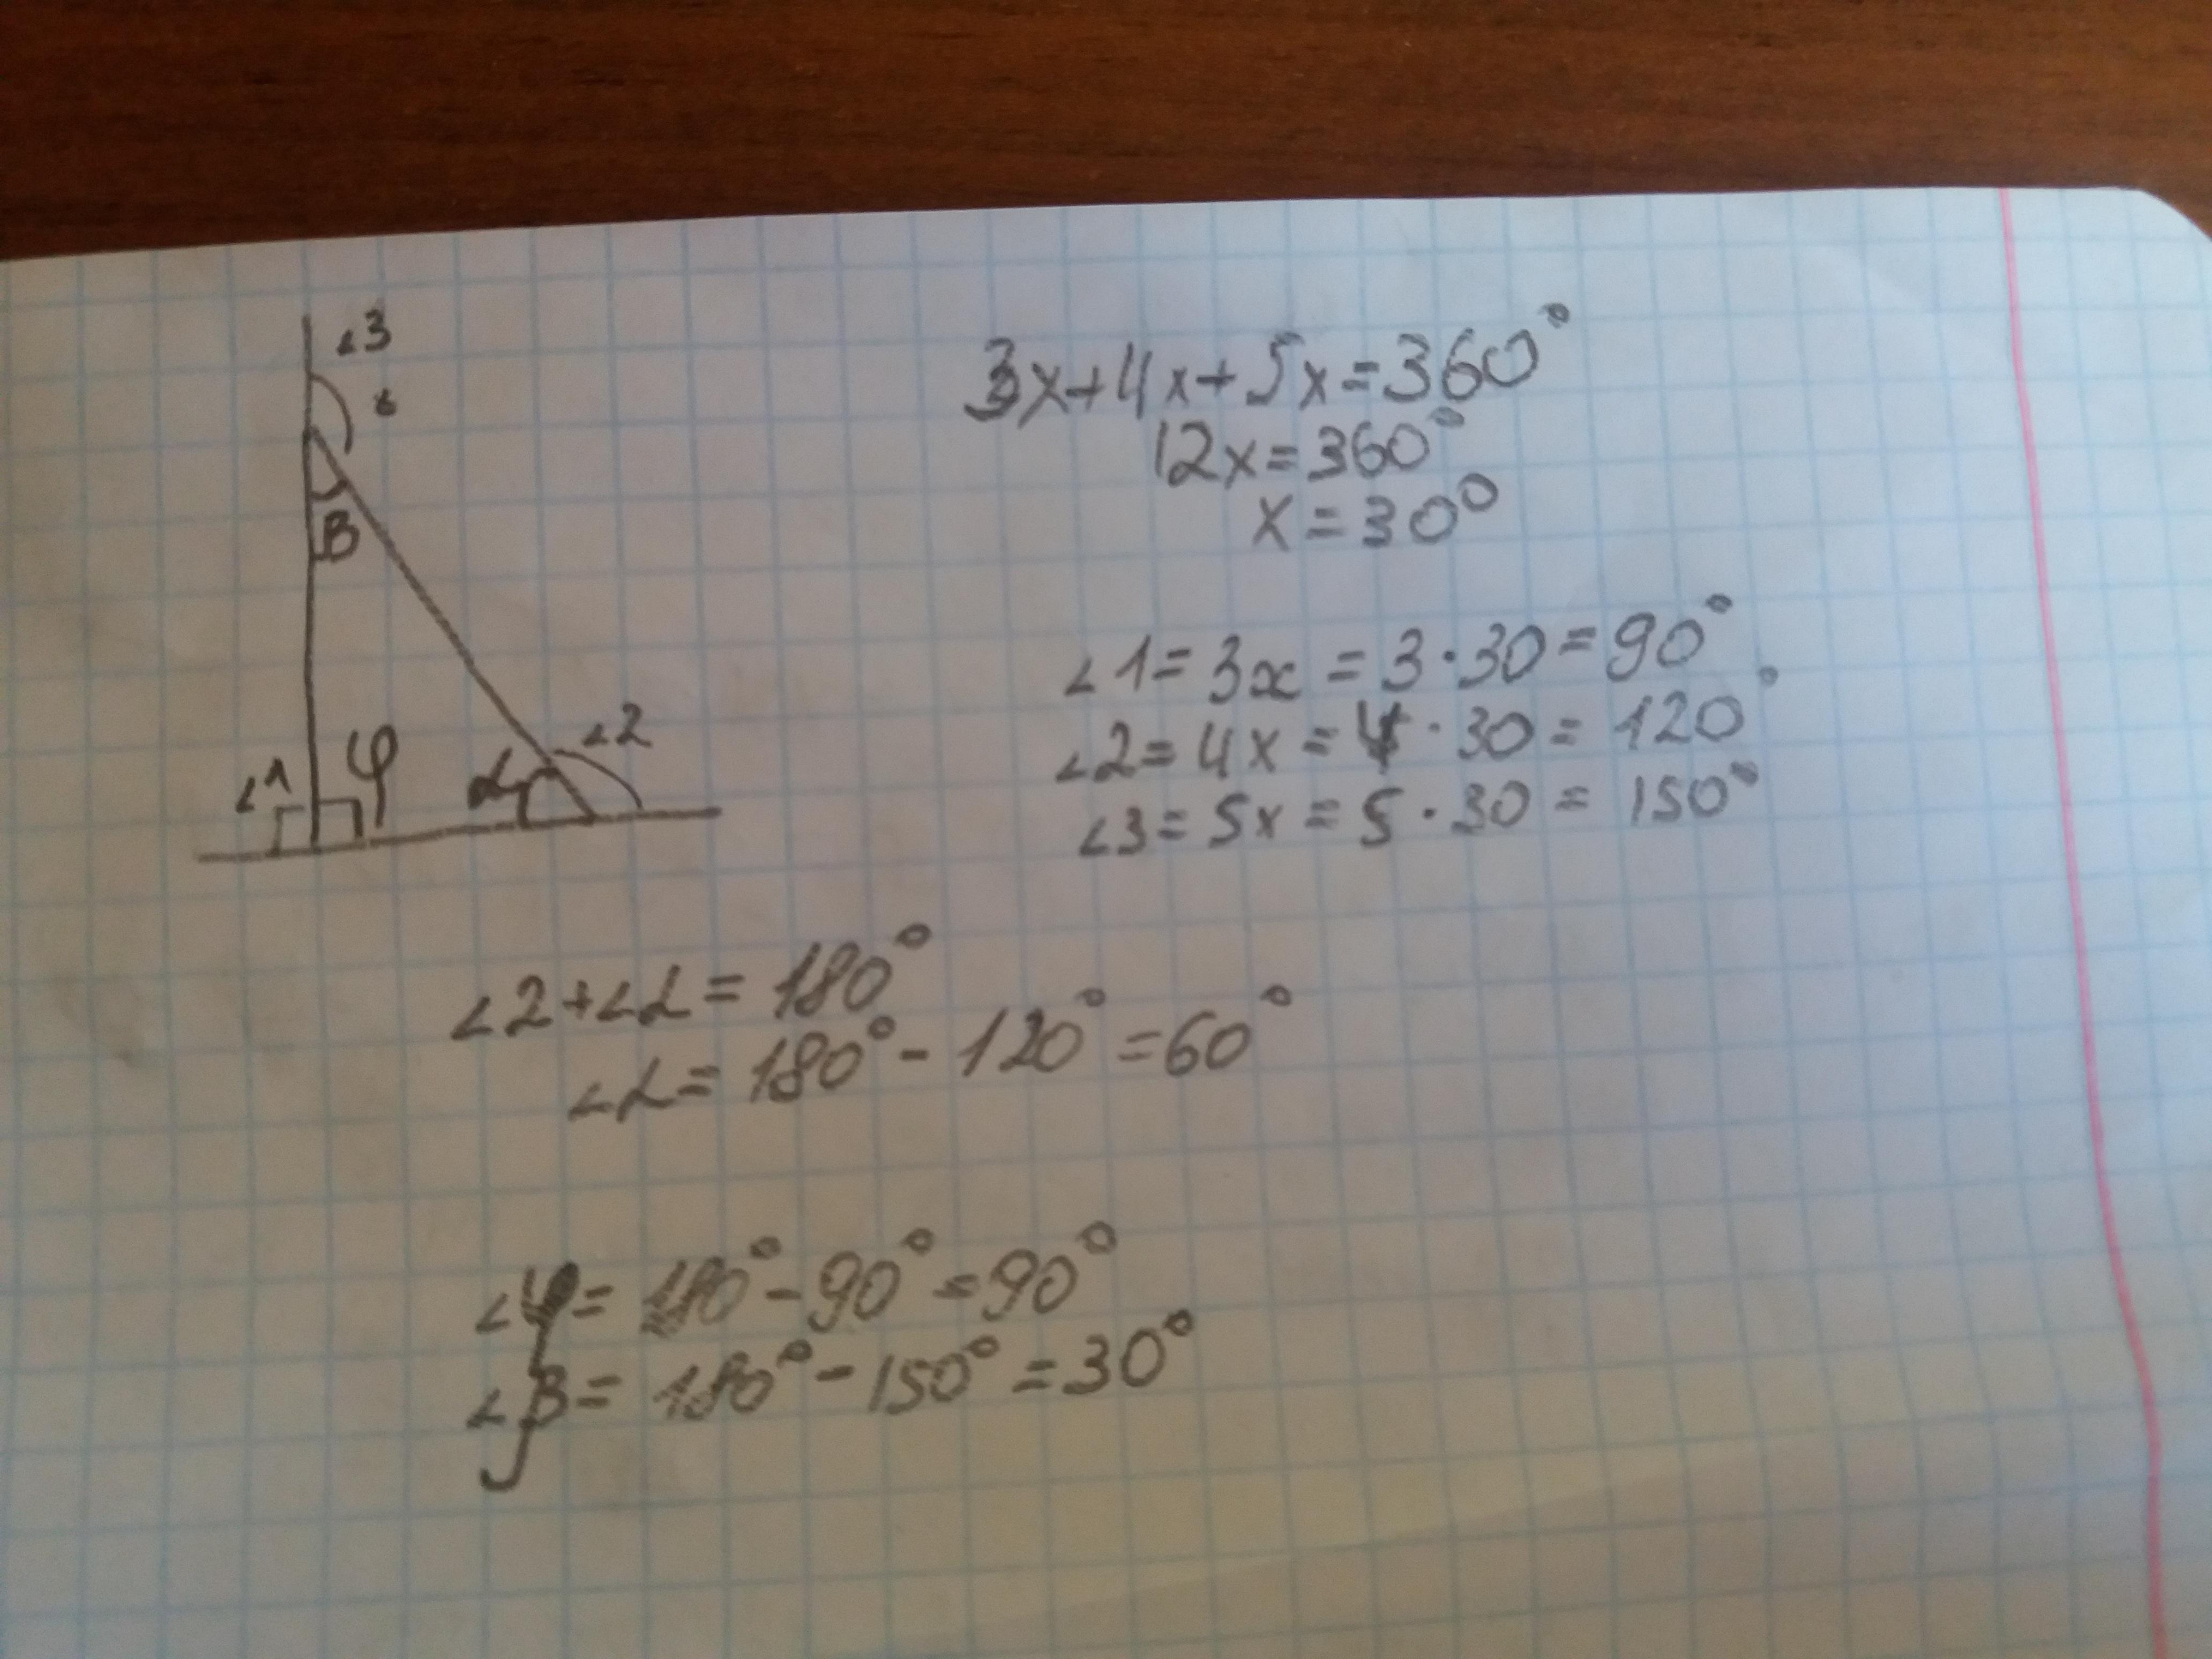 ∠3
β
∠1
φ
α
∠2
3x+4x+5x=360°
12x=360°
x=30°
∠1=3x=3·30=90°
∠2=4x=4·30=120°
∠3=5x=5·30=150°
∠2+∠α=180°
∠α=180°-120°=60°
∠φ=180°-90°=90°
∠β=180°-150°=30°